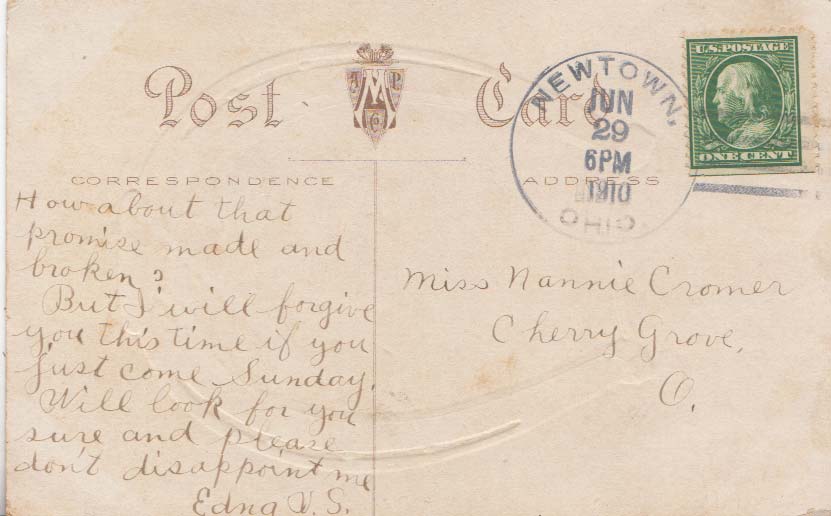 Post Card
CORRESPONDENCE
ADDRESS
NEWTOWN,
JUN
29
6PM
1910
OHIO.
U.S. POSTAGE
ONE CENT
How about that
promise made and
broken?
But I will forgive
you this time if you
just come Sunday.
Will look for you
sure and please
don't disappoint me
Edna V. S.
Miss Nannie Cromer
Cherry Grove,
O.